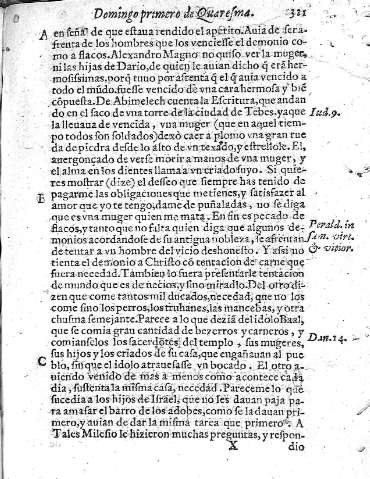 Domingo primero de Quaresma. 321
A en señal de que estaua rendido el apetito. Auia de ser a
frenta de los hombres que los venciesse el demonio co
mo a flacos. Alexandro Magno no quiso ver la muger,
ni las hijas de Dario, de quien le auian dicho q̃ erã her
mosissimas, porq̃ tuuo por afrenta q̃ el q̃ auia vencido a
todo el mũdo, fuesse vencido de vna cara hermosa y biẽ
cõpuesta. De Abimelech cuenta la Escritura, que andan
do en el saco de vna torre de la ciudad de Tebes, ya que Iud. 9.
la lleuaua de vencida, vna muger (que en aquel tiem-
po todos son soldados) dexò caer a plomo vna gran rue
da de piedra desde lo alto de vn texado, y estrellole. El,
auergonçado de verse morir a manos de vna muger, y
el alma en los dientes llama a vn criado suyo. Si quie-
res mostrar (dize) el desseo que siempre has tenido de
B pagarme las obligaciones que me tienes, y satisfazer al
amor que yo te tengo, dame de puñaladas, no se diga
que es vna muger quien me mata. En fin es pecado de
flacos, y tanto que no falta quien diga que algunos de- Perald. in
monios acordandose de su antigua nobleza, se afrentan sum. virt.
de tentar a vn hombre del vicio deshonesto. Y assi no & vitior.
tienta el demonio a Christo cõ tentacion de carne que
fuera necedad. Tambien lo fuera presentarle tentacion
de mundo que es de necios, y sino miradlo. Del otro di-
zen que come tantos mil ducados, necedad, que no los
come sino los perros, los truhanes, las mancebas, y otra
chusma semejante. Parece a lo que dezia del idolo Baal,
que se comia gran cantidad de bezerros y carneros, y
comianselos los sacerdotes del templo, sus mugeres, Dan. 14.
sus hijos y los criados de su casa, que engañauan al pue
C blo, sin que el idolo atrauesasse vn bocado. El otro a-
uiendo venido de mas a menos como acontece cada
dia, sustenta la misma casa, necedad. Pareceme lo que
sucedia a los hijos de Israel, que no les dauan paja pa-
ra amasar el barro de los adobes, como se la dauan pri-
mero, y auian de dar la misma tarea que primero. A
Tales Milesio le hizieron muchas preguntas, y respon-
X dio